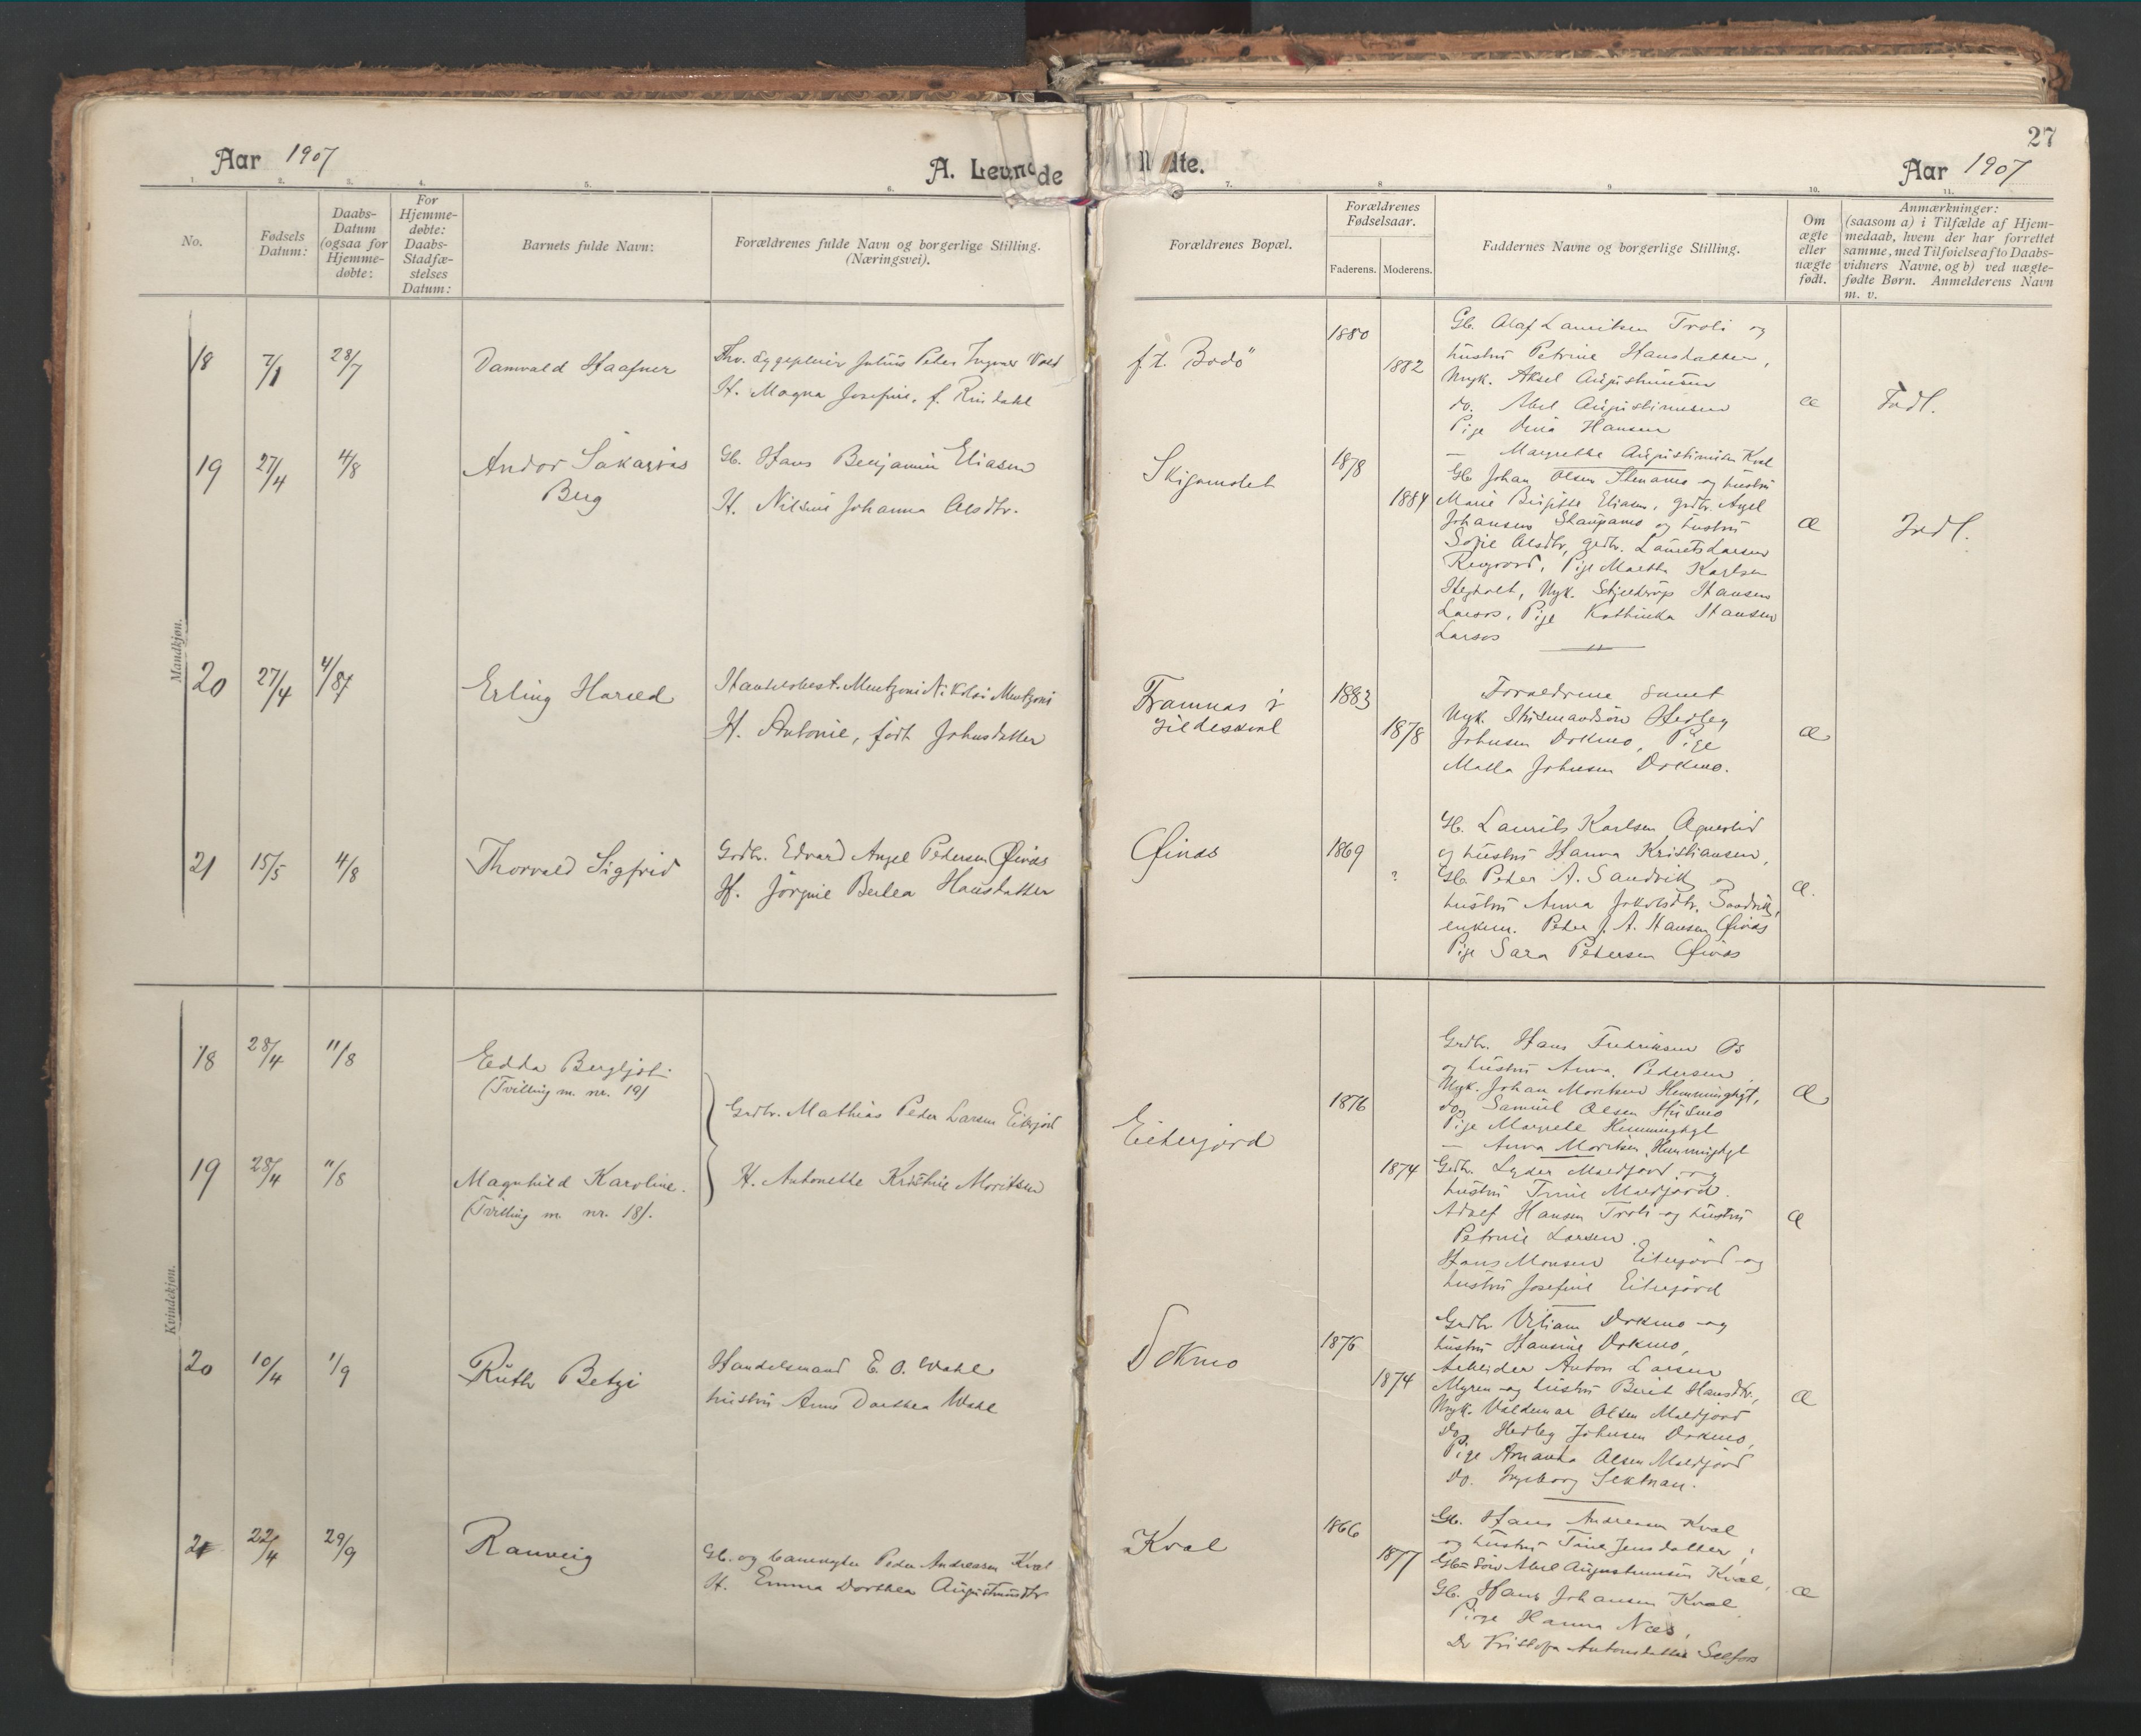 Aar 1907
A. Levende
dte.
27
Aar 1907
1. 2. 3. 4. 5. 6. 7. 8 9 10. 11.
No.
Fødsels
Datum:
Daabs-
Datum
(ogsaa for
Hjemme-
døbte:
For
Hjemme-
døbte:
Daabs-
Stadfæ-
stelses
Datum:
Barnets fulde Navn:
Forældrenes fulde Navn og borgerlige Stilling.
(Næringsvei).
Forældrenes Bopæl.
Forældrenes
Fødselsaar.
Faderens. Moderens.
Faddernes Navne og borgerlige Stilling.
Om
ægte
eller
uægte
født.
Anmærkninger:
(saasom a) i Tilfælde af Hjem-
medaab, hvem der har forrettet
samme, med Tilføielse af to Daabs-
vidners Navne, og b) ved uægte-
fødte Børn. Anmelderens Navn
m. v.
Mandkjøn.
18 7/1 28/7
Danvald Haafner
Julius Peder Ingvar
H. Magna Josefine, f. Rindahl
f. t. Bodø
1880
1882
Gb. Olaf Lauritsen Troli og
hustru Petrine Hansdatter,
Ungk. Aksel Augustinusen
do. Abel Augustinusen
Pige Hansen
— Margrethe Augustinusen Kval
æ
Indl.
19 27/4 4/8
Andor Sakarias
Berg
Gb. Hans Benjamin Eliasen
H. Nilsine Johanna Olsdtr.
Skigamolet
1878
1884
Gb Johan Olsen Stenamo og hustru
Marie Birgitte Eliasen, grdbr. Axel
Johansen Staupamo og hustru
Sofie Olsdtr, grdbr. Laurits Larsen
Pige Martha Karlsen
Ungk. Schjelderup Hansen
Larsos, Pige Kathinka Hansen
Larsos
æ
Indl.
20 27/4 4/8 7
Erling Harald
Handelsbest. Mentzoni Nikolai Mentzoni
H. Antonie, født Johnsdatter
Framnes i
Gildeskaal
1883
1878
Forældrene samt
Ungk. Husmandsøn Hedley
Johnsen Dokmo, Pige
Malla Johnsen Dokmo.
æ
21 15/5 4/8
Thorvald Sigfrid
Grdbr. Edvard Angel Pedersen Øinæs
H. Jørgine Berlea Hansdatter
Øinæs
1869
?
Gb. Laurits Karlsen Agnerlid
og hustru Hanna Kristiansen,
Gb. Peder A. Sandvik og
hustru Anna Jakobsdtr. Sandvik,
enkem. Peder J. A. Hansen Øinæs
Pige Sara Petersen Øinæs
æ.
Kvindekjøn.
18 28/4 11/8
Edda Bergljot
(Tvilling m. nr. 19)
Grdbr. Mathias Peder Larsen Eiterjord
Eiterjord
1876
Grdbr. Hans Fredriksen Os
og hustru Anna Pedersen,
Ungk. Johan Moritsen Hemminghyt,
do Samuel Olsen Husmo
Pige Margrete Hemminghyt
— Anna Moritsen, Hemminghyt
æ
19 28/4 11/8
Magnhild Karoline.
(Tvilling m. nr. 18).
H. Antonette Kristine Moritsen
1874
Grdbr. Lyder Moldjord og
hustru Trine Moldjord.
Adolf Hansen Troli og hustru
Petrine Larsen.
Hans Monsen Eiterjord og
hustru Josefine Eiterjord
æ
20 10/4 1/9
Ruth Betzi
Handelsmand E. O. Wahl
hustru Anne Dorthea Wahl
Dokmo
1876
1874
Grdbr Viliam Dokmo og
hustru Hansine Dokmo,
Arbeider Anton Larsen
Myren og hustru Berit Hansdtr,
Ungk. Valdemar Olsen Moldjord
do Hedley Johnsen Dokmo,
Pige Amanda Olsen Moldjord
do. Ingeborg Sektnan.
æ
21 22/4 29/9
Ranveig
Gb. og Peder Andreasen Kval
H. Emma Dorthea Augustinusdtr
Kval
1866
1877
Gb. Hans Andreasen Kval
og hustru Tine Jensdatter,
Gb-søn Abel Augustinusen Kval,
Gb. Hans Johansen Kval
Pige Hanna Næs,
Do Antonsdatter Selfors
æ